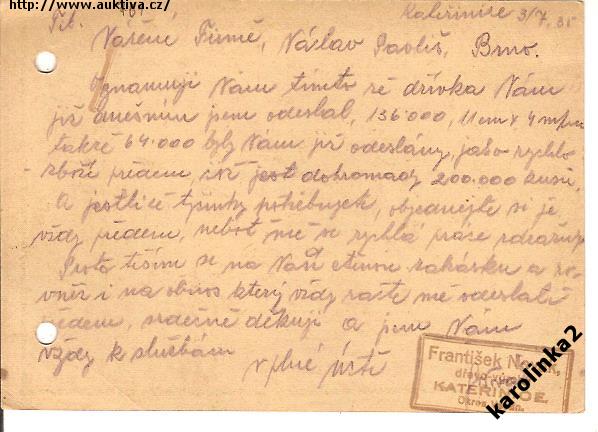 http://www.auktiva.cz/
Kateřinice 3/7. 35
Vážené Firmě, Václav Pavliš, Brno.
Oznamuji Vám tímto že dřívka Vám
již dnešním jsem odeslal, 136000, 11 cm x 4 m/m
takže 64.000 byly Vám již odeslány, jako rychlo
zboží předem, což jest dohromady 200.000 kusů,
A jestliže tyčinky potřebujete, objednejte si je
vždy předem, neboť mě se rychlá práce
Proto těším se na Vaši ctěnou zakázku a ro-
vněž i na obnos který vždy račte mě odeslati
předem, srdečně děkuji a jsem Vám
vždy k službám
v plné úctě
František
KATEŘINICE,
Okres
karolinka2